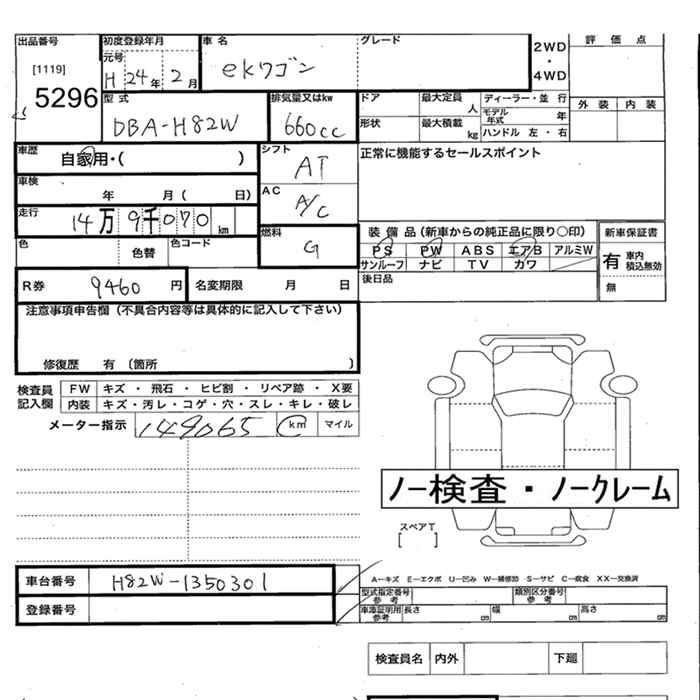 出品番号 初度登録年月 車名 グレード 2WD・4WD 評価点
[1119] 元号 H 24年 2月 ekワゴン
5296
型式 DBA-H82W 排気量又はkw 660cc
ドア 最大定員 人 ディーラー・並行 外装 内装
形状 最大積載 kg モデル年式 年
ハンドル 左・右
車歴 自家用・( ) シフト AT 正常に機能するセールスポイント
車検 年 月( 日) AC A/C
走行 14万9千070km 燃料 G
装備品(新車からの純正品に限り〇印) 新車保証書
色 色替 色コード
PS PW ABS エアB アルミW 有 車内積込無効
サンルーフ ナビ TV カワ 無
後日品
R券 9460円 名変期限 月 日
注意事項申告欄(不具合内容等は具体的に記入して下さい)
修復歴 有〔箇所 〕
検査員記入欄 FW キズ・飛石・ヒビ割・リペア跡・X要
内装 キズ・汚レ・コゲ・穴・スレ・キレ・破レ
メーター指示 149065 km マイル
ノー検査・ノークレーム
スペアT
[ ]
車台番号 H82W-1350301
登録番号
A−キズ E−エクボ U−凹み W−補修跡 S−サビ C−腐食 XX−交換済
型式指定番号 参考 類別区分番号 参考
車庫証明用 参考 長さ cm 幅 cm 高さ cm
検査員名 内外 下廻